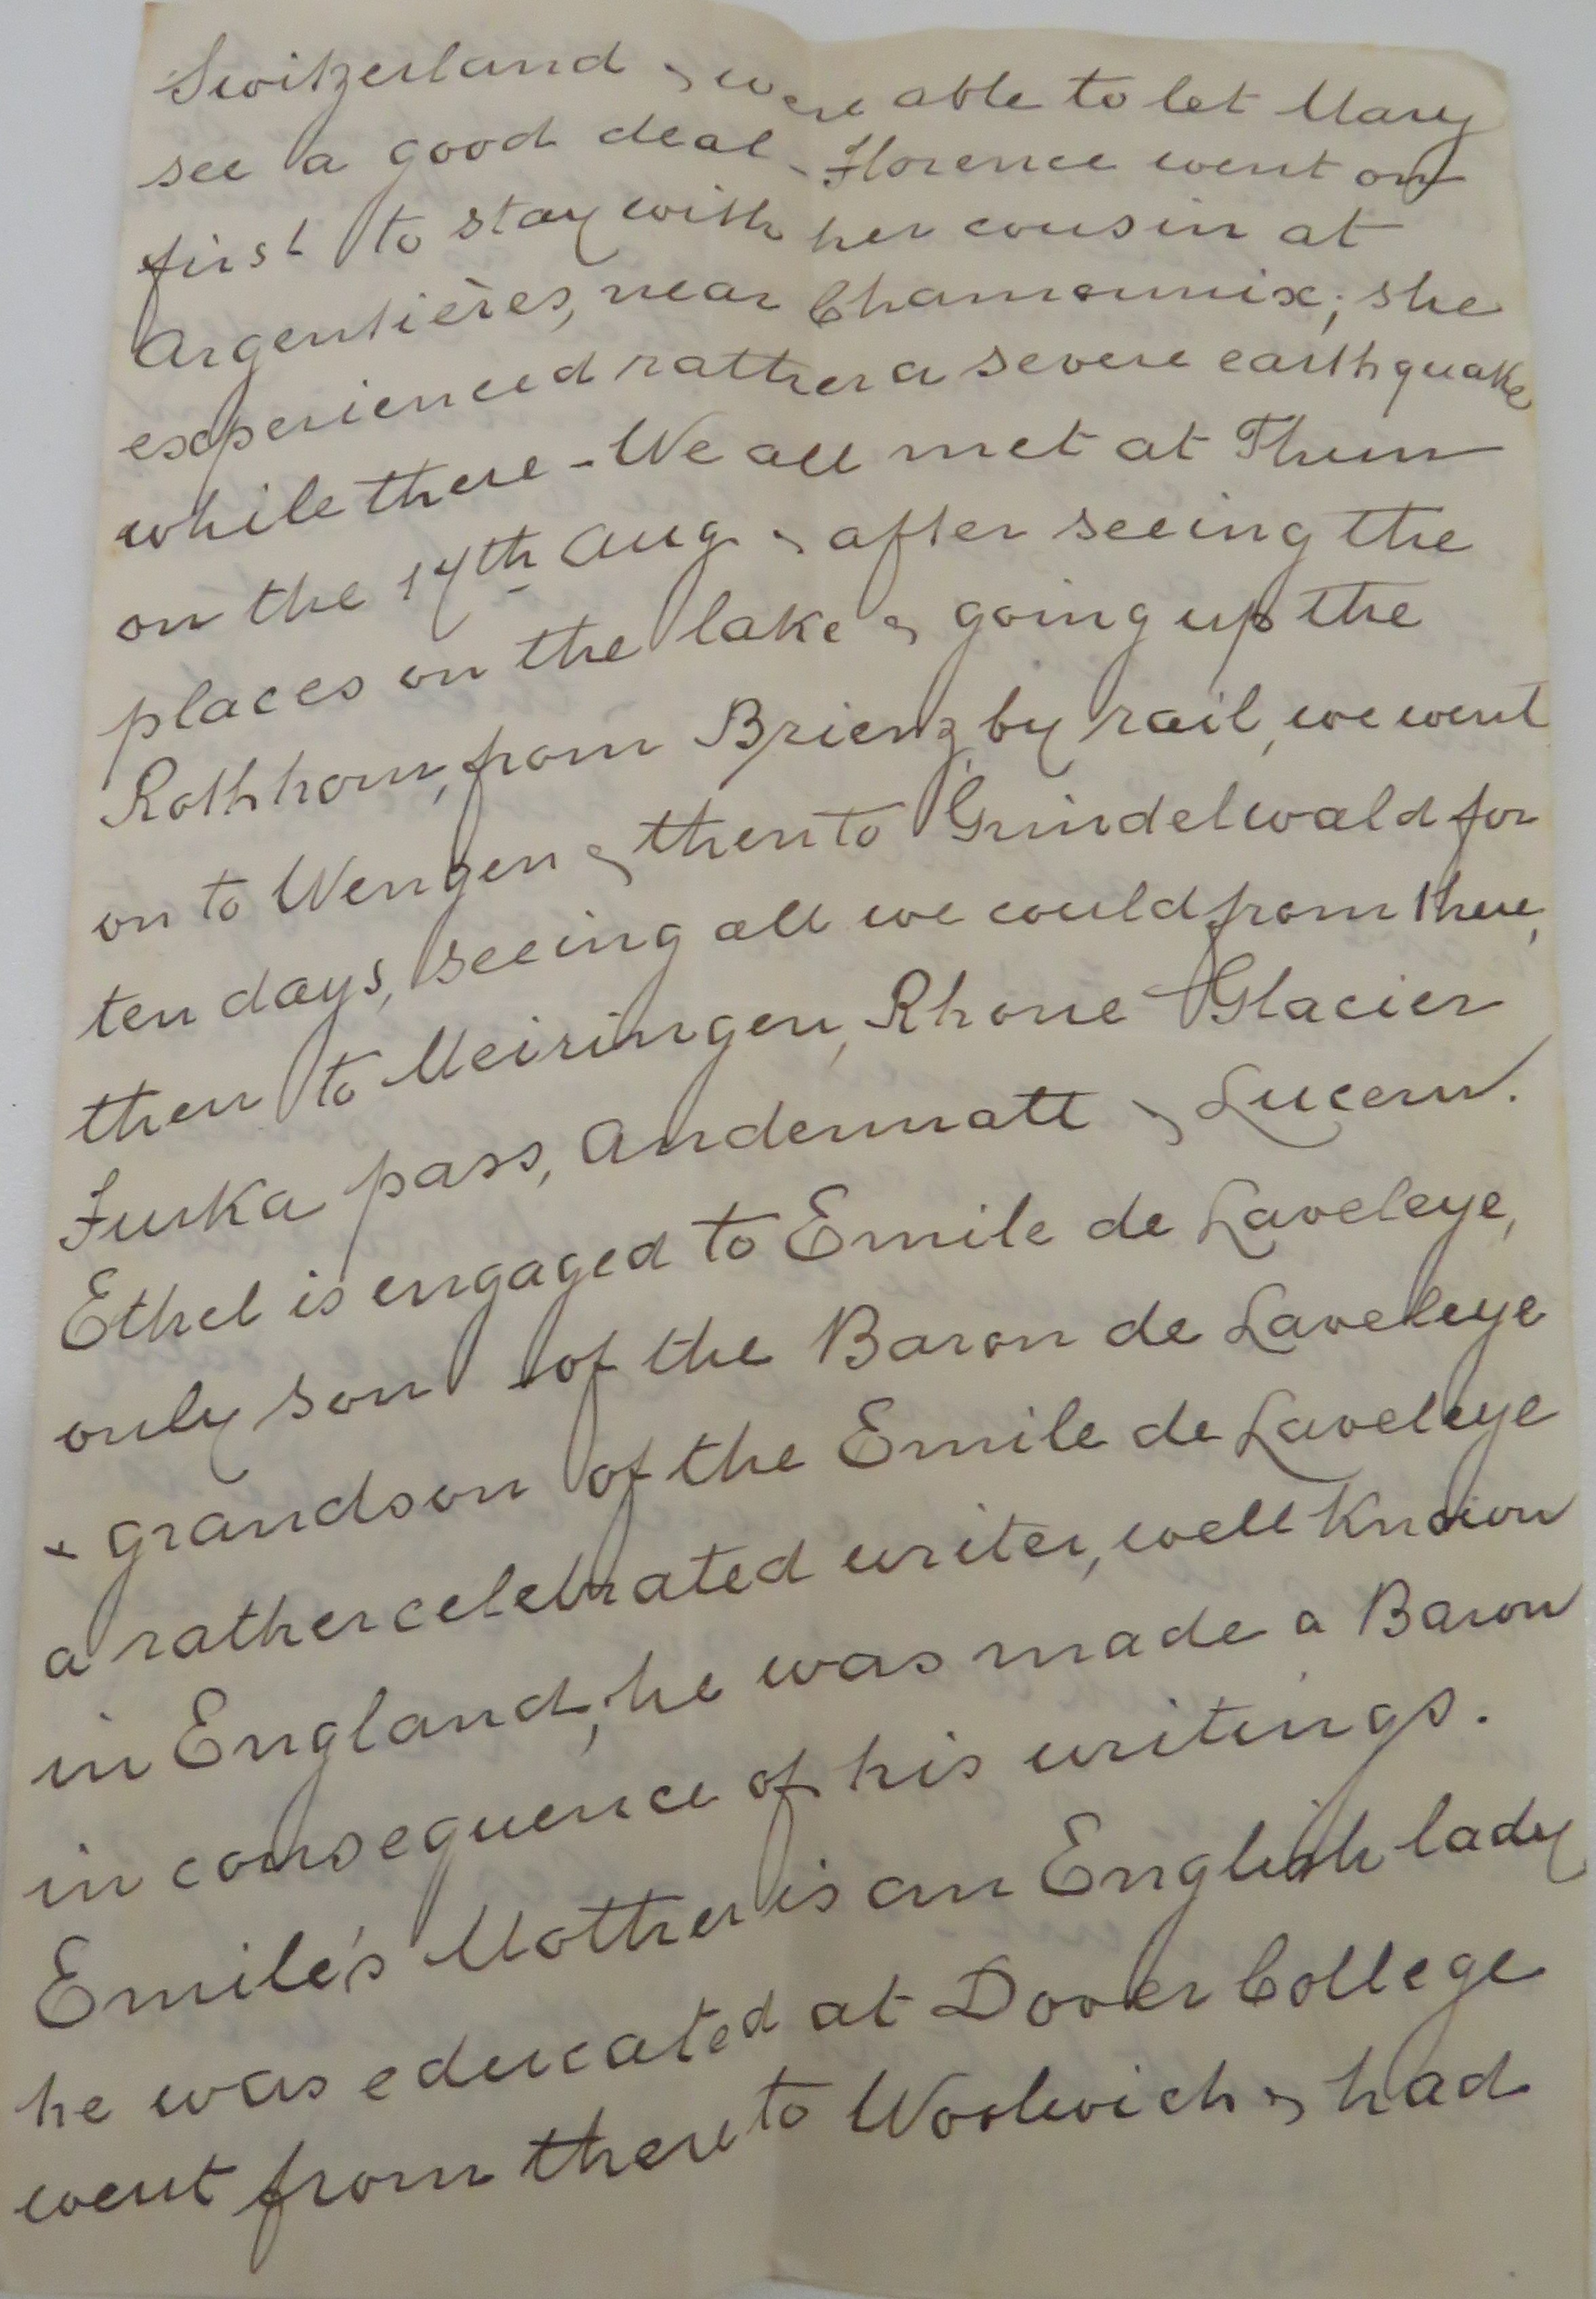 Switzerland & were able to let Mary
see a good deal - Florence went on
first to stay with her cousin at
Argentières, near Chamounix; she
experienced rather a severe earthquake
while there - We all met at Thun
on the 17th Aug & after seeing the
places on the lake & going up the
Rothhorn, from Brienz, by rail, we went
on to Wengen & then to Grindelwald for
ten days, seeing all we could from there,
then to Meiringen, Rhone Glacier
Furka pass, Andermatt & Lucern.
Ethel is engaged to Emile de Laveleye,
only son of the Baron de Laveleye
& grandson of the Emile de Laveleye
a rather celebrated writer, well known
in England, he was made a Baron
in consequence of his writings.
Emile's Mother is an English lady
he was educated at Dover College
went from there to Woolwich & had